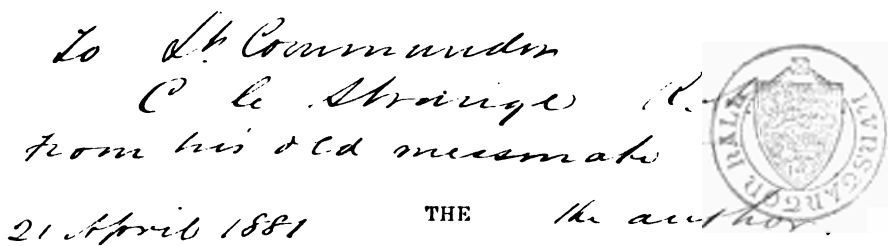 To Lt Commander
C le Strange R.N
from his old messmate
21 April 1881 THE the author.